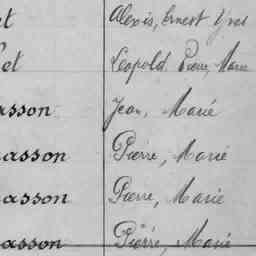 et Alexis, Ernest Yves
et Léopold Pierre, Marie
asson Jean, Marié
asson Pierre, Marié
asson Pierre, Marie
asson Pierre, Marie